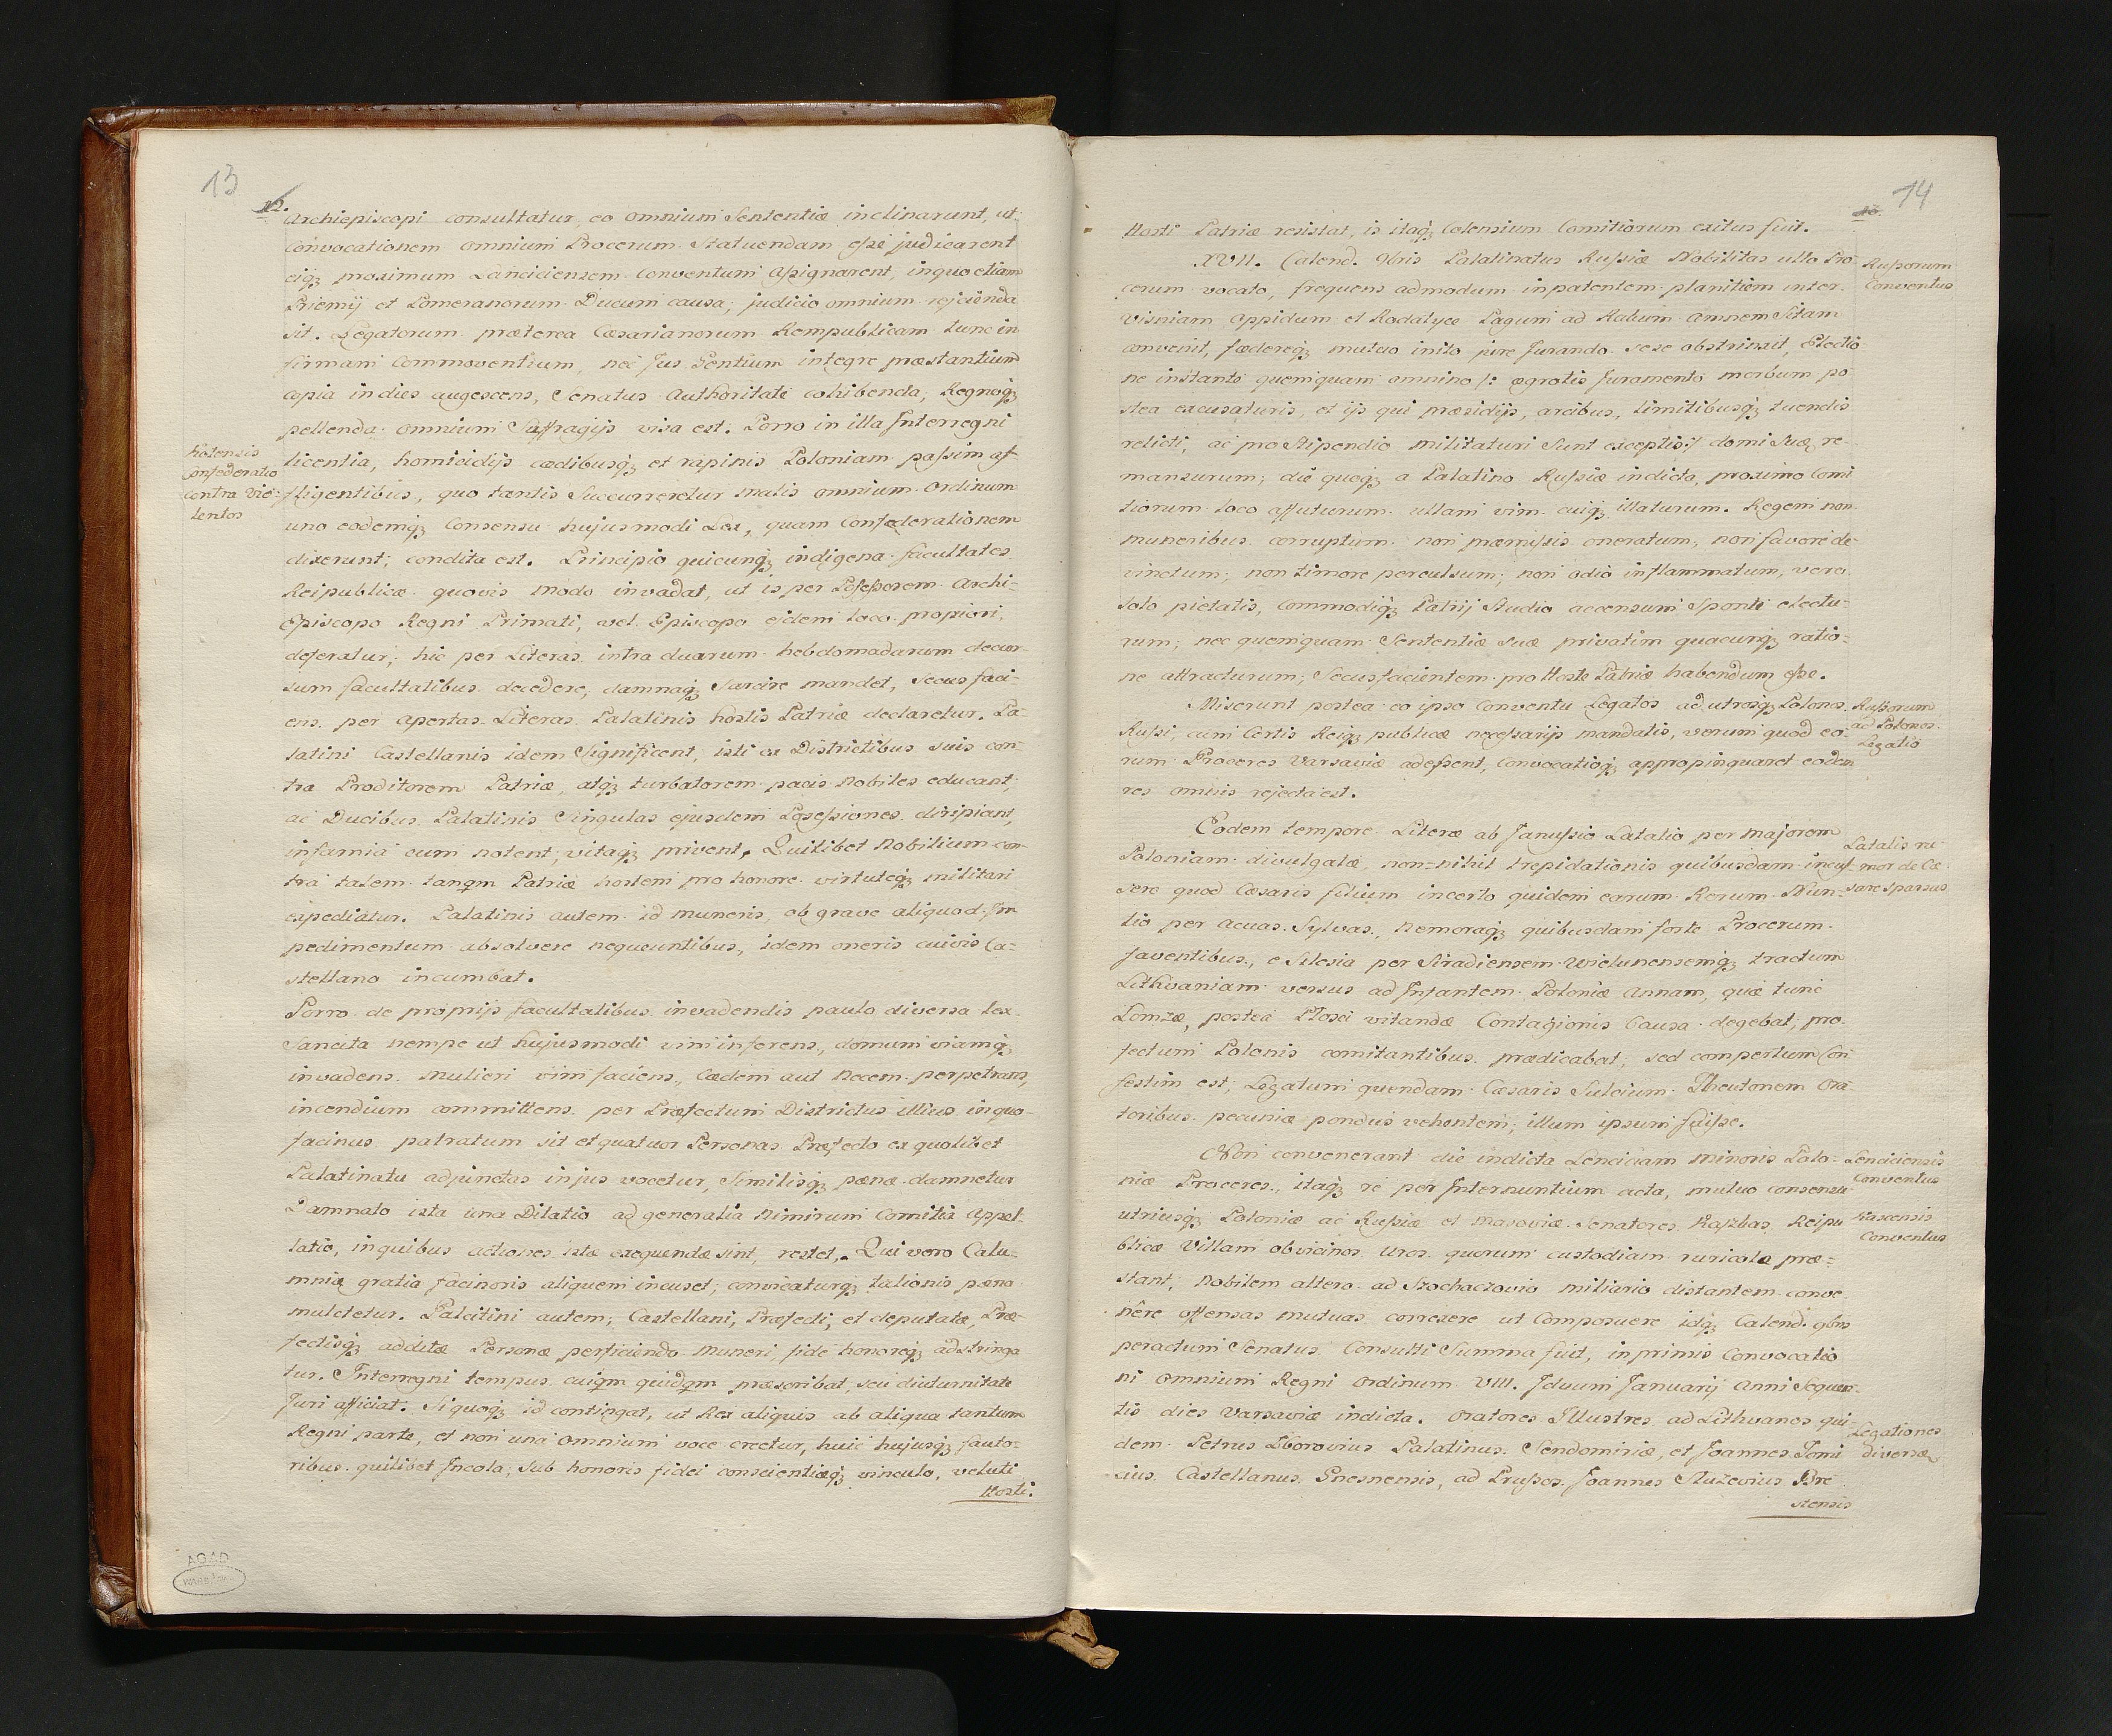 13
12.
Archiepiscopi consultatur eo omnium Sententiæ inclinarunt, ut
Convocationem omnium Procerum Statuendam eße judicarent
eiq3 proximum Lancidiensem Conventum aßignarent, in quo etiam
Priemij et Pomeranorum Ducum causa, judicio omnium rejcienda
sit. Legatorum præterea Cæsarianorum Rempublicam tunc in
firmam Commoventium, nec Jus Gentium integre præstantium
copia in dies augescens, Senatus Authoritate cohibenda, Regnoq3
pellenda omnium Suffragijs visa est. Porro in illa Interregni
licentia, homicidijs cædibusq3 et rapinis Poloniam paßim af-
fligentibus, quo tantis Succurreretur malis omnium Ordinum
uno eodemq3 Consensu hujusmodi Lex, quam Confæderationem
dixerunt; condita est. Principio quicunq3 indigena facultates
Reipublicæ quovis modo invadat, ut is per Poßeßorem Archi-
Episcopo Regni Primati, vel Episcopo ejdem loco propiori,
deferatur; hic per Literas intra duarum hebdomadarum decur-
sum facultatibus decedere, damnaq3 Sarcire mandet, Secus faci-
ens per apertas Literas Palatinis hostis Patriæ declaretur. Pa-
latini Castellanis idem Significent, isti ex Districtibus suis con-
tra Proditorem Patriæ, atq3 turbatorem pacis Nobiles educant,
ac Ducibus Palatinis Singulas ejusdem Poßeßiones diripiant,
infamia eum notent, vitaq3 privent. Quilibet Nobilium con-
tra talem tanqm Patriæ hostem pro honore virtuteq3 militari
expediatur. Palatinis autem id muneris, ob grave aliquod Im
pedimentum absolvere nequeuntibus, idem oneris cuivis Ca-
stellano incumbat.
Porro de proprijs facultatibus invadendis paulo diversa lex
Sancita nempe ut hujusmodi vim inferens, domum viamq3
invadens Mulieri vim faciens, Cædem aut Necem perpetrans,
incendium committens per Præfectum Districtus illius in quo
facinus patratum sit et quatuor Personas Præfecto ex quolibet
Palatinatu adjunctas in jus vocetur, Similisq3 pæna damnetur
Damnato ista una Dilatio ad generalia Nimirum Comitia Appel-
latio, in quibus actiones istæ exequendæ sint, restet. Qui vero Calu-
mniæ gratia facinoris aliquem incuset, convicaturq3 talionis pæna
mulctetur. Palatini autem, Castellani, Præfecti, et deputatæ, Præ-
fectisq3 additæ Personæ perficiendo Muneri, fide honoreq3 adstringa
tur. Interregni tempus cuiqm quidqm præscribat, seu diuturnitate
Juri afficiat. Si quoq3 id contingat, ut Rex aliquis ab aliqua tantum
Regni parte, et non una omnium voce crectur, huic hujusq3 fauto-
ribus quilibet Incola, Sub honoris fidei conscientiæq3 vinculo, veluti
Hosti.
Kolensis
Confederatio
contra Vio-
lentos
14
Hosti Patriæ resistat, is itaq3 Colensium Comitiorum exitus fuit.
XVII. Calend. 9bris Palatinatus Rußiæ Nobilitas ullo Pro-
cerum vocato, frequens admodum in patentem planitiem inter
Visniam Oppidum et Rodatyce Pagum ad Ratum Amnem Sitam
convenit, fædereq3 mutuo inito jure Jurando sese obstrinxit, Electio
ne instante quemquam omnino /: ægrotis Juramento morbum po
stea excusaturis, et ijs qui præsidijs, arcibus, limitibusq3 tuendis
relicti, ac pro Stipendio militaturi Sunt exceptis :/ domi Suæ re
mansurum; die quoq3 a Palatino Rußiæ indicto, proximo Comi
tiorum loco affuturum ullam vim cuiq3 illaturum. Regem non
muneribus corruptum non præmißis oneratum, non favore de-
vinctum; non timore perculsum; non odio inflammatum, vero
solo pietatis, Commodiq3 Patrij Studio accensum Sponte electu-
rum; nec quemquam Sententiæ suæ privatim quacunq3 ratio-
ne attracturum; Secus facientem pro Hoste Patriæ habendum eße.
Miserunt postea eo ipso Conventu Legatos ad utrosq3 Polonos
Rußi, cum Certis Reiq3 publicæ neceßarijs mandatis, verum quod eo-
rum Proceres Varsaviæ adeßent, Convocatioq3 appropinquaret eodem
res omnis rejecta est.
Eodem tempore Literæ ab Janußio Latalio per Majorem
Poloniam divulgatæ non-nihil trepidationis quibusdam incuß-
sere quod Cæsaris filium incerto quidem earum Rerum Nun-
tio per Acuas Sylvas, Nemoraq3 quibusdam forte Procerum
faventibus, e Silesia per Siradiensem Wielunensemq3 tractum
Lithvaniam versus ad Infantem Poloniæ Annam, quæ tunc
Lomzæ, postea Plosci vitandæ Contagionis Causa degebat, pro-
fectum Polonis comitantibus prædicabat, sed compertum Con
festim est, Legatum quendam Cæsaris Sulcium Theutonem Ora
toribus pecuniæ pondus vehentem, illum ipsum fuiße.
Non convenerant die indicta Lenciciam Minoris Polo-
niæ Proceres, itaq3 re per Internuntium acta, mutuo consensu
utriusq3 Poloniæ ac Rußiæ et Masoviæ Senatores Raßbas Reipu
blicæ Villam ob vicinos Uros quorum custodiam ruricolæ præ-
stant, Nobilem altero ad Szochaczovio miliario distantem conve
nêre offensas mutuas correxere ut Composuere idq3 Calend. 9bris
peractum Senatus Consulti Summa fuit, in primis Convocatio
ni omnium Regni Ordinum VIII. Iduum Januarij Anni Sequen-
tis dies Varsaviæ indicta. Oratores Illustres ad Lithvanos qui-
dem Petrus Zborovius Palatinus Sendomiriæ, et Joannes Tomi
cius Castellanus Gnesnensis, ad Prußos Joannes Sluzevius Bre
stensis
Rußorum
Conventus
Rußorum
ad Polonos
Legatio
Latalis ru
mor de Cæ
sare Sparsus
Lenciciensis
Conventus
Kascensis
Conventus
Legationes
diversæ
AGAD